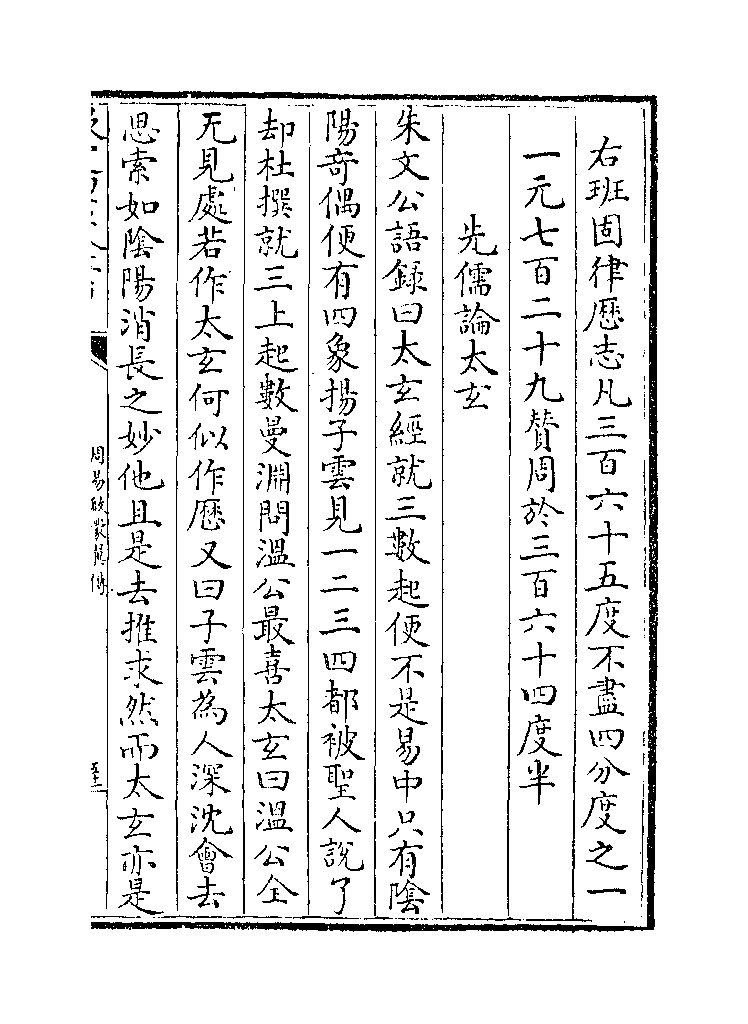 右班固律歴志凡三百六十五度不盡四分度之一
一元七百二十九賛周於三百六十四度半
先儒論太玄
朱文公語録曰太玄經就三數起便不是易中只有陰
陽奇偶便有四象揚子雲見一二三四都被聖人說了
却杜撰就三上起數曼淵問溫公最喜太玄曰溫公全
无見處若作太玄何似作歴又曰子雲為人深沈會去
思索如陰陽消長之妙他且是去推求然而太玄亦是
周易啟蒙翼傳